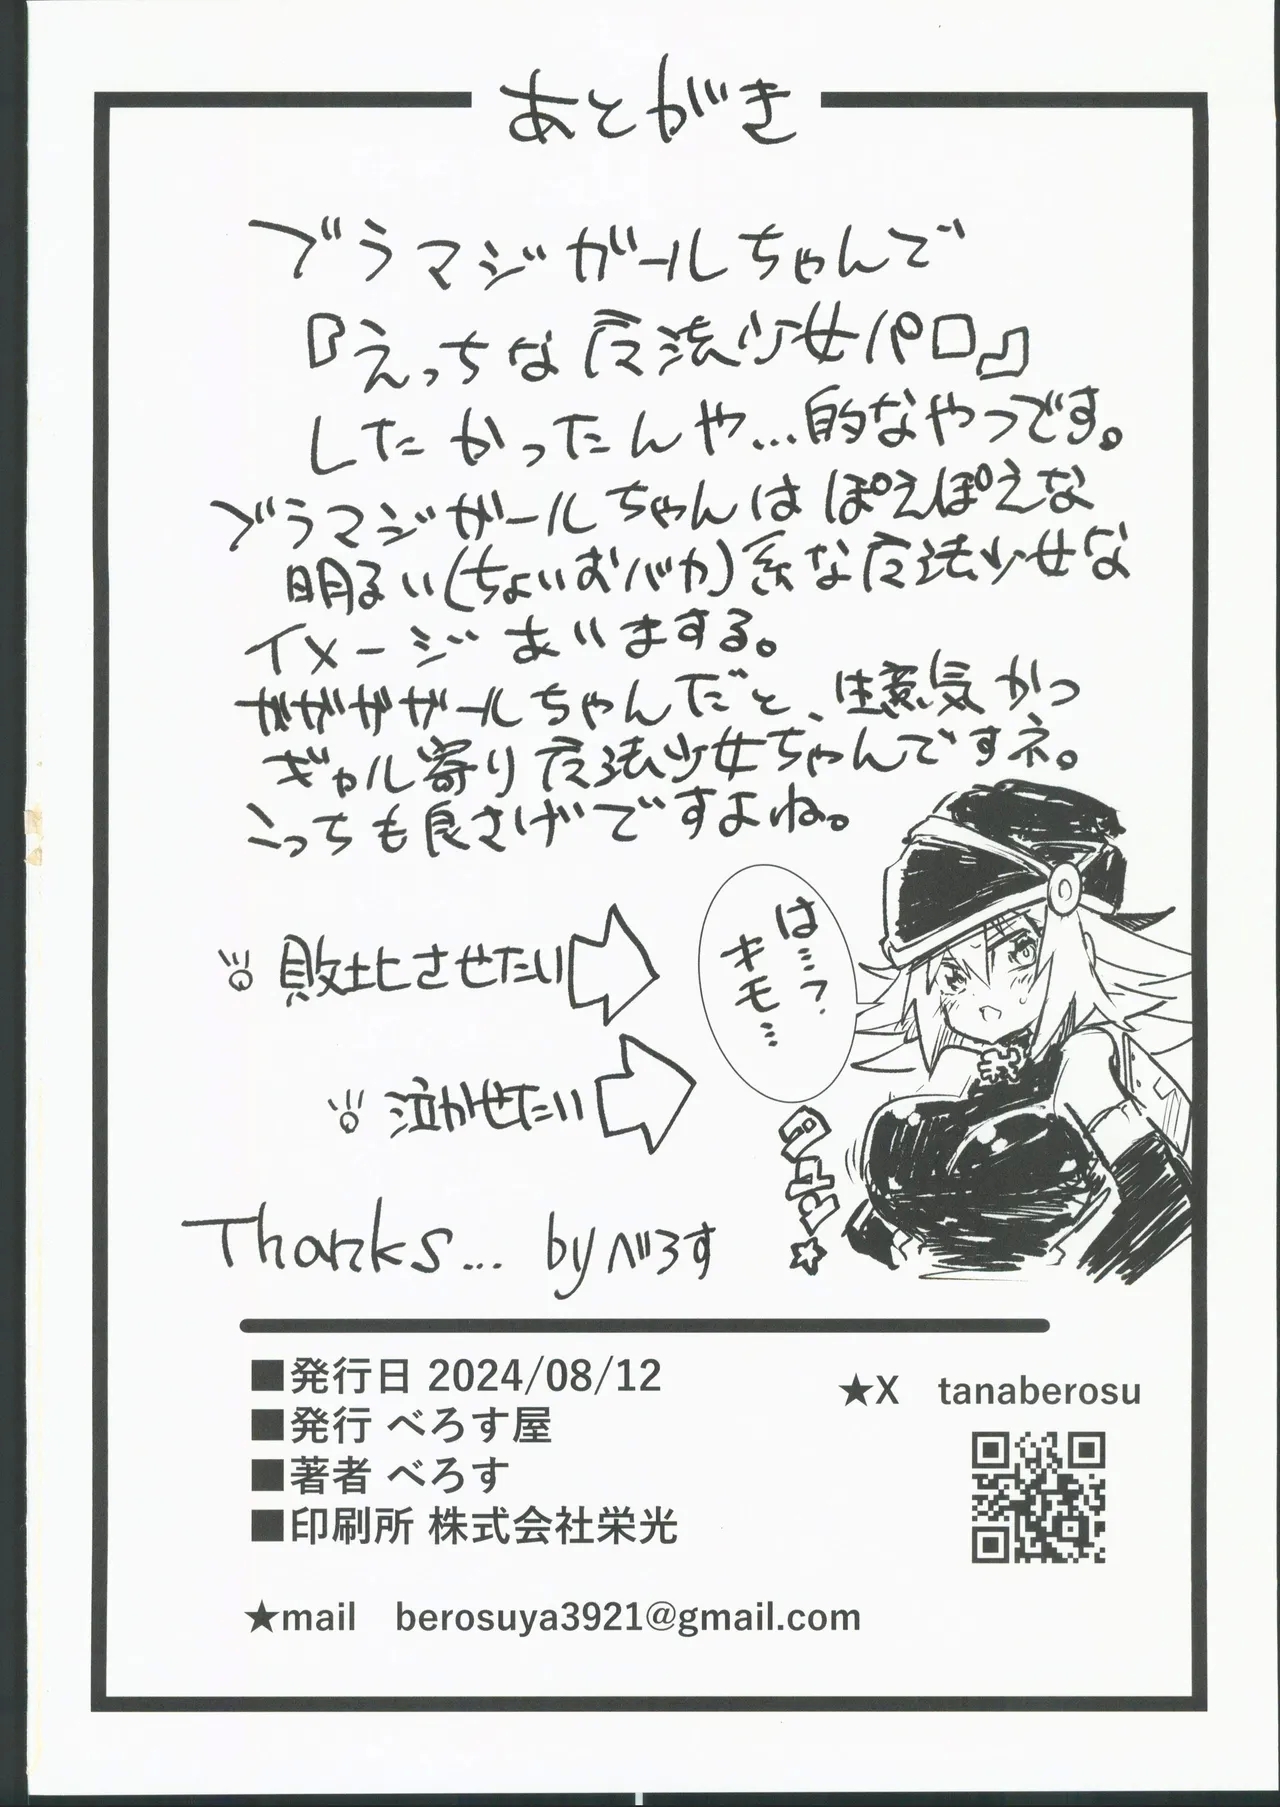 あとがき
ブラマジガールちゃんで
『えっちな魔法少女パロ』
したかったんや…的なやつです。
ブラマジガールちゃんはぽえぽえな
明るい(ちょいおバカ)系な魔法少女な
イメージあいまする。
ガガガガールちゃんだと、生意気かつ
ギャル寄り魔法少女ちゃんですネ。
こっちも良さげですよね。
は…?
キモ…
敗北させたい
泣かせたい
Thanks... byべろす
■発行日 2024/08/12
■発行 べろす屋
■著者 べろす
■印刷所 株式会社栄光
★X tanaberosu
★mail berosuya3921@gmail.com